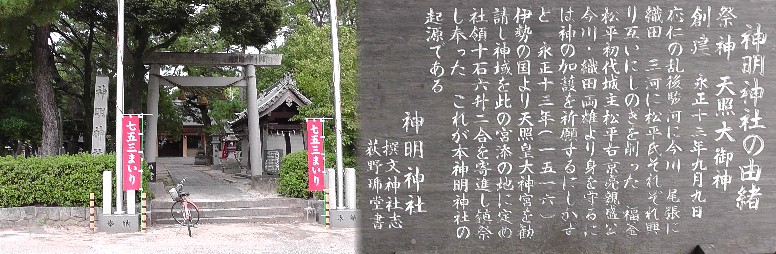 神明神社
七五三まいり
七五三まいり
奉納
神明神社の由緒
祭神 天照大御神
創建 永正十三年九月九日
応仁の乱後駿河に今川 尾張に
織田 三河に松平氏それぞれ興
り互いにしのぎを削った 福釜
松平初代城主松平右京亮親盛公
今川・織田両雄より身を守るに
は神の加護を祈願するにしかず
と 永正十三年(一五一六)
伊勢の国より天照皇大神宮を勧
請し神域を此の宮添の地に定め
社領十石六斗二合を寄進し鎮祭
し奉った これが本神明神社の
起源である
神明神社
撰文神社志
荻野瑞堂書